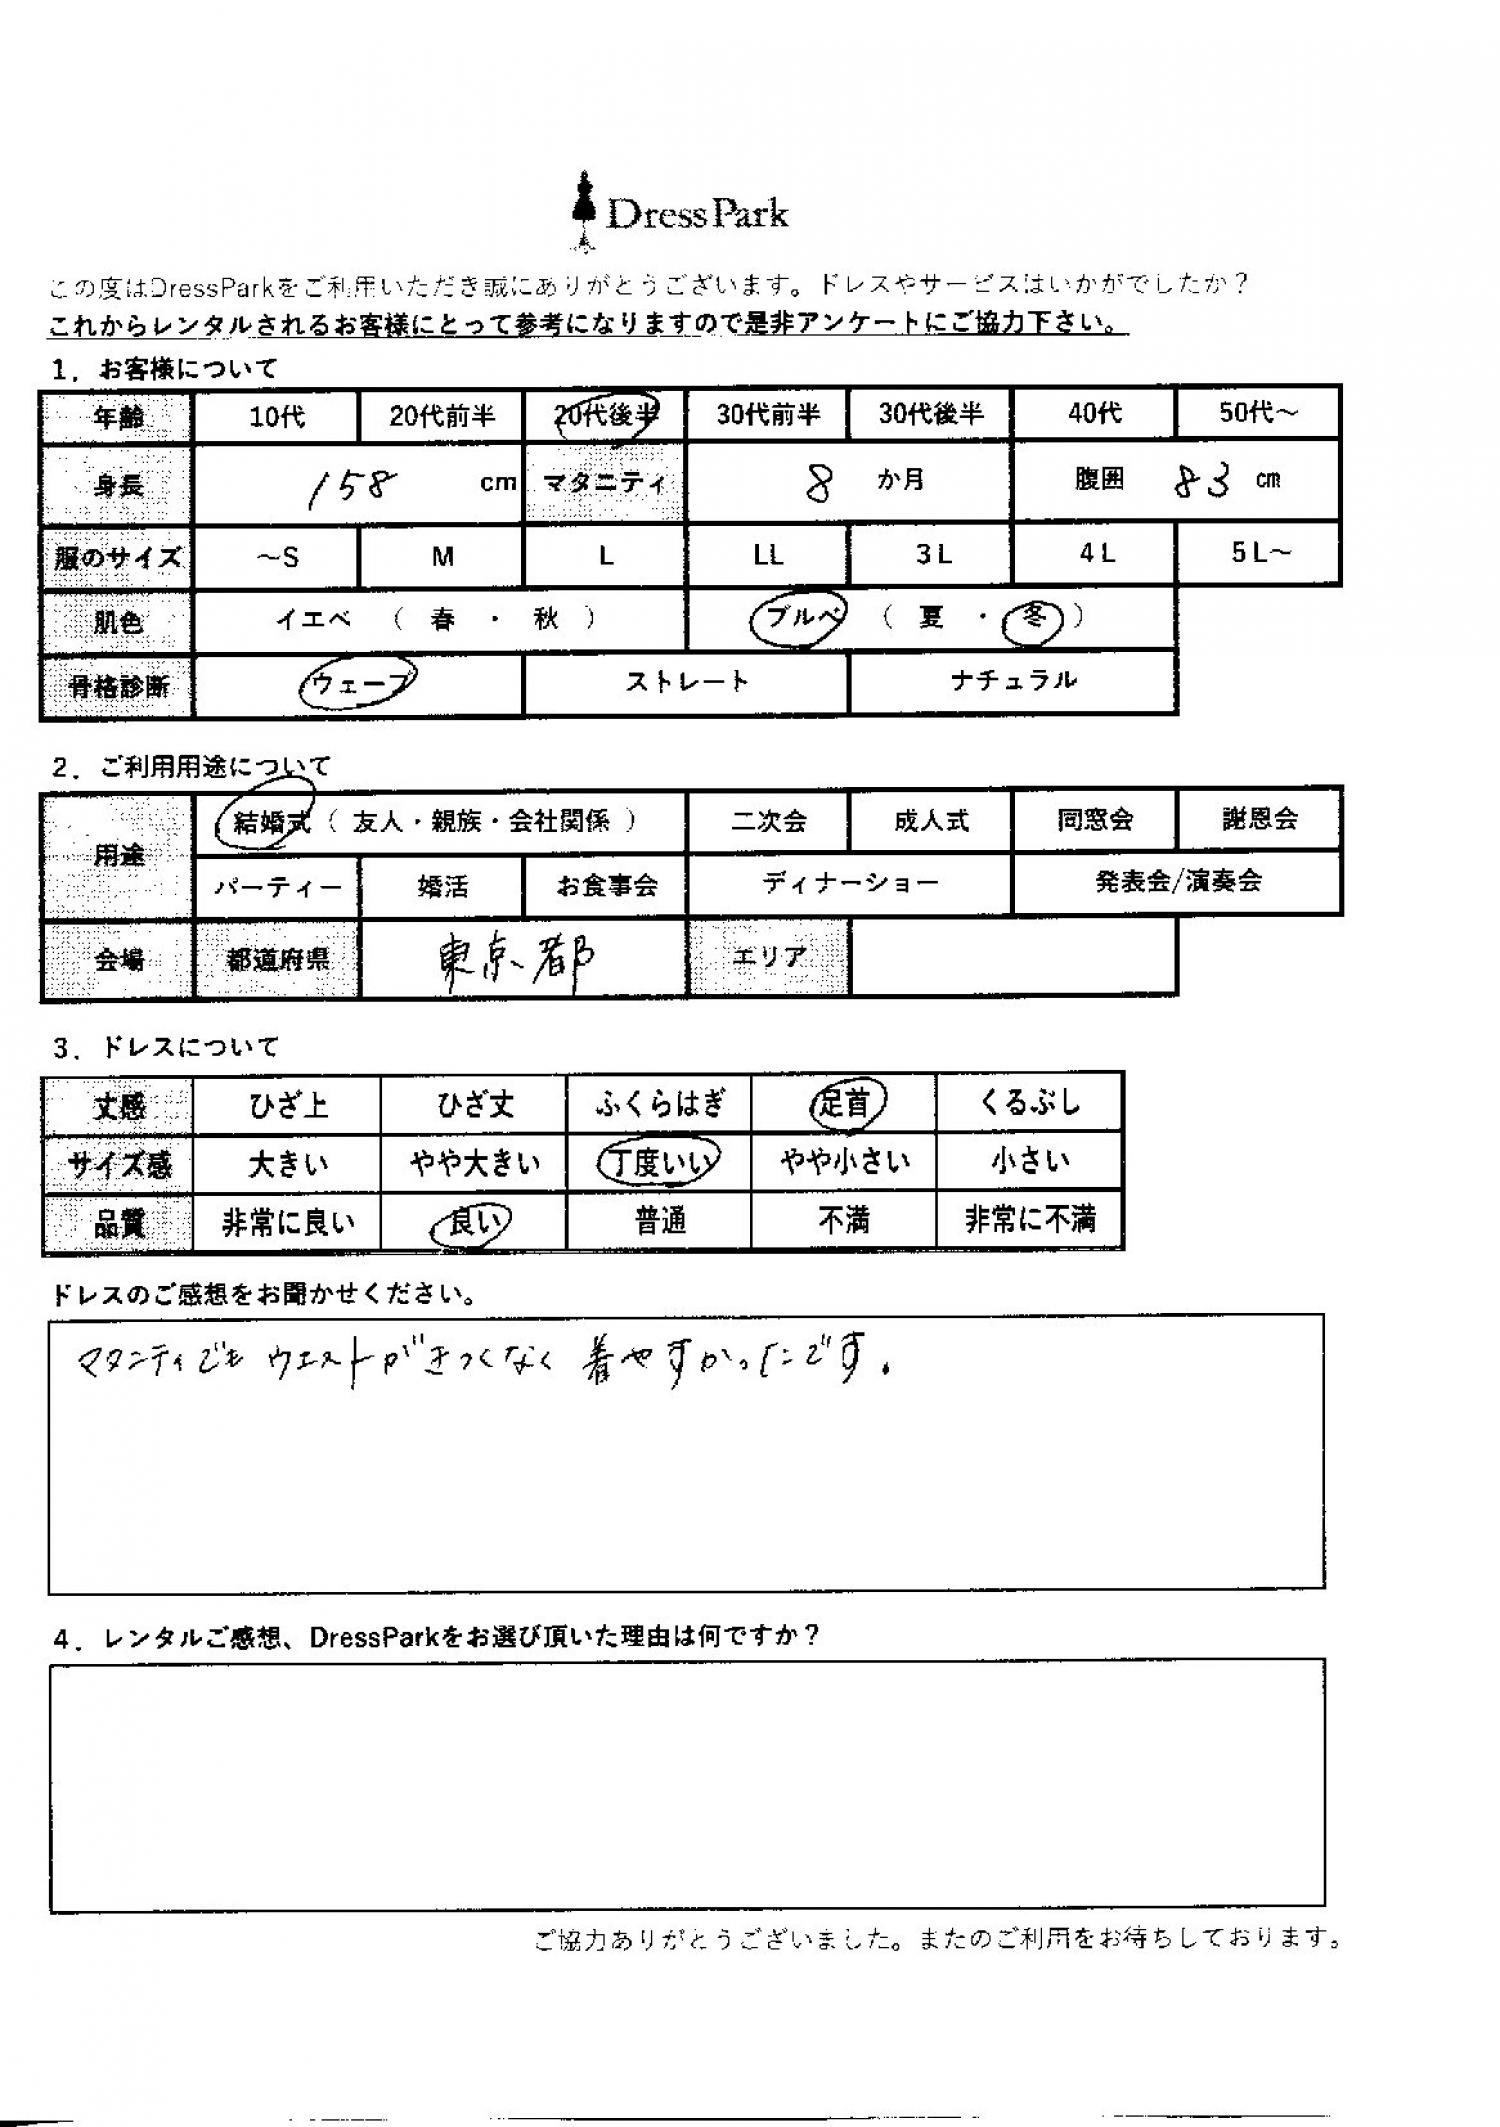 DressPark
この度はDressParkをご利用いただき誠にありがとうございます。ドレスやサービスはいかがでしたか？
これからレンタルされるお客様にとって参考になりますので是非アンケートにご協力下さい。
1．お客様について
年齢 10代 20代前半 20代後半 30代前半 30代後半 40代 50代～
身長 158 cm マタニティ 8 か月 腹囲 83 cm
服のサイズ ～S M L LL 3L 4L 5L～
肌色 イエベ （ 春 ・ 秋 ） ブルベ （ 夏 ・ 冬 ）
骨格診断 ウェーブ ストレート ナチュラル
2．ご利用用途について
用途 結婚式（ 友人・親族・会社関係 ） 二次会 成人式 同窓会 謝恩会
パーティー 婚活 お食事会 ディナーショー 発表会/演奏会
会場 都道府県 東京都 エリア
3．ドレスについて
丈感 ひざ上 ひざ丈 ふくらはぎ 足首 くるぶし
サイズ感 大きい やや大きい 丁度いい やや小さい 小さい
品質 非常に良い 良い 普通 不満 非常に不満
ドレスのご感想をお聞かせください。
マタニティでも ウエストがきつくなく 着やすかったです.
4．レンタルご感想、DressParkをお選び頂いた理由は何ですか？
ご協力ありがとうございました。またのご利用をお待ちしております。